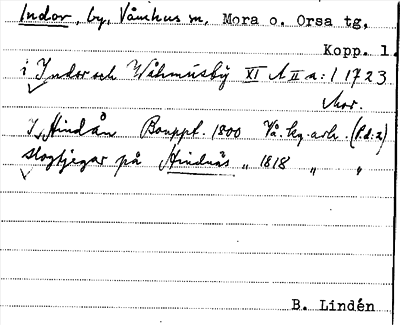 Indor, by, Våmhus sn, Mora o. Orsa tg,
Kopp. l.
i Indor och Wåhmusby XI A II a:1 1723
I Hindån Bouppt. 1800 Vå. kg. ark. (F.d.2)
slogtjegar på Hindnäs " 1818 " "
B. Lindén